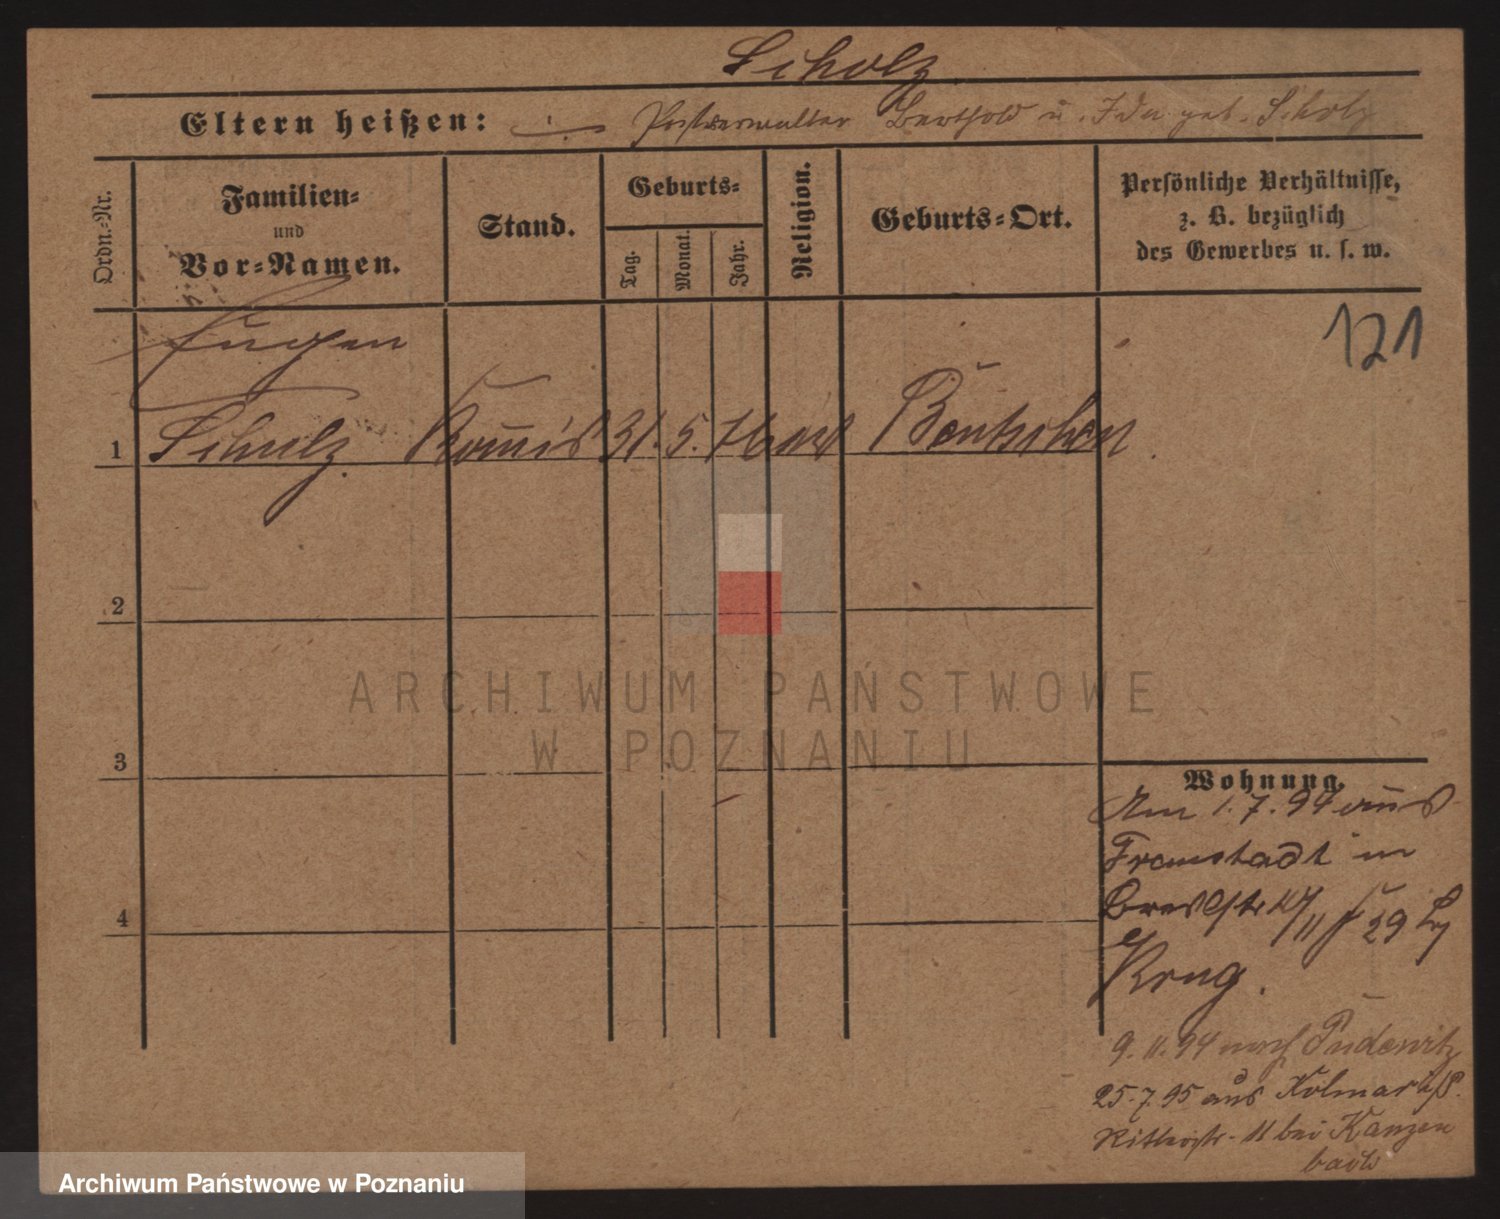 Scholz
Eltern heißen: Postverwalter Berthold u. Ida geb. Scholz
Ordn.-Nr.
Familien-
und
Vor-Namen.
Stand.
Geburts-
Tag.
Monat.
Jahr.
Religion.
Geburts-Ort.
Persönliche Verhältnisse,
z. B. bezüglich
des Gewerbes u. s. w.
121
Eugen
1 Scholz Komis 31. 5. 76 Bentschen
2
3
4
Wohnung.
Am 1.7.94 aus
Fraustadt in
Krug.
9.11.94 nach Pudewitz
25.7.95 aus Kolmar i/P.
Ritterstr. 11 bei Kanzen
bach
ARCHIWUM PAŃSTWOWE
W POZNANIU
Archiwum Państwowe w Poznaniu